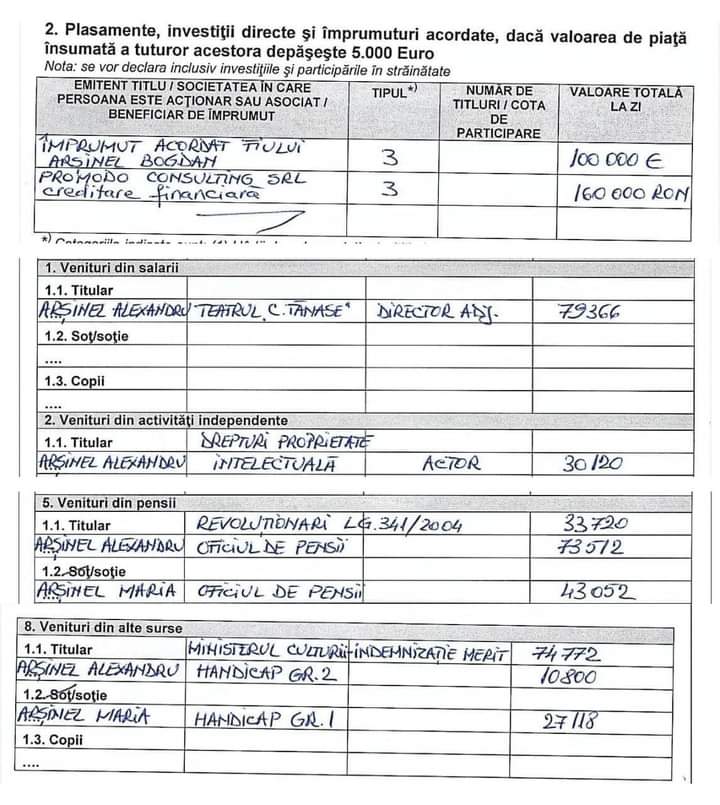 2. Plasamente, investiţii directe şi împrumuturi acordate, dacă valoarea de piaţă
însumată a tuturor acestora depăşeşte 5.000 Euro
Nota: se vor declara inclusiv investiţiile şi participările în străinătate
EMITENT TITLU / SOCIETATEA ÎN CARE PERSOANA ESTE ACŢIONAR SAU ASOCIAT / BENEFICIAR DE ÎMPRUMUT TIPUL*) NUMĂR DE TITLURI / COTA DE PARTICIPARE VALOARE TOTALĂ LA ZI
ÎMPRUMUT ACORDAT FIULUI
ARSINEL BOGDAN 3 100 000 €
PROMODO CONSULTING SRL
creditare financiară 3 160 000 RON
1. Venituri din salarii
1.1. Titular
ARŞINEL ALEXANDRU TEATRUL "C. TĂNASE" DIRECTOR ADJ. 79366
1.2. Soţ/soţie
....
1.3. Copii
....
2. Venituri din activităţi independente
1.1. Titular DREPTURI PROPRIETATE
ARŞINEL ALEXANDRU INTELECTUALĂ ACTOR 30120
5. Venituri din pensii
1.1. Titular REVOLUŢIONARI LG.341/2004 33720
ARŞINEL ALEXANDRU OFICIUL DE PENSII 73512
1.2. Soţ/soţie
ARŞINEL MARIA OFICIUL DE PENSII 43052
8. Venituri din alte surse
1.1. Titular MINISTERUL CULTURII-INDEMNIZAŢIE MERIT 74772
ARŞINEL ALEXANDRU HANDICAP GR.2 10800
1.2. Soţ/soţie
ARŞINEL MARIA HANDICAP GR.1 27118
1.3. Copii
....